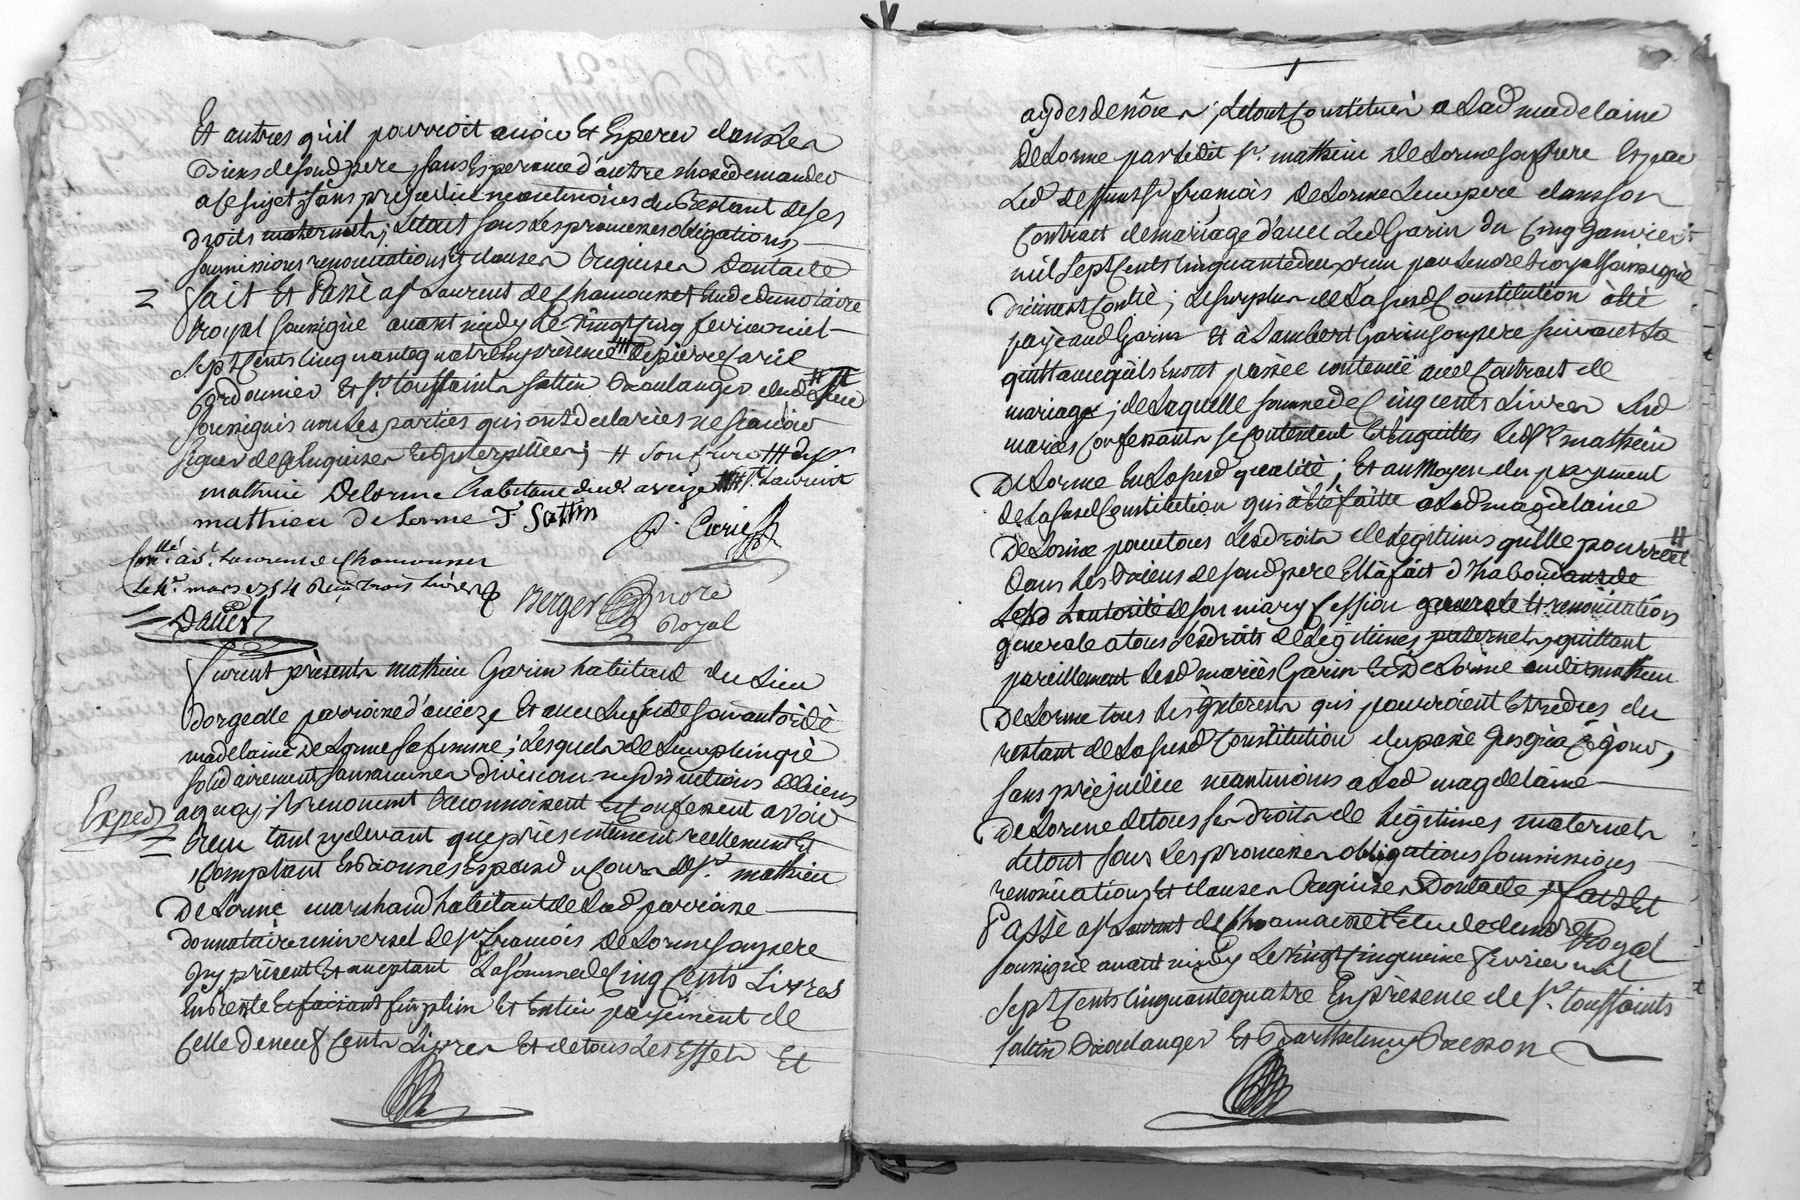 Et autres qu'il pourroit avoir Et Esperer dans Les
Biens de sond pere, sans Esperance d'autre chose demander
a ce sujet, sans prejudice neantmoins du Restant de ses
droits maternels; Le tout sous Les promesses obligations
soumissions renonciations & clauses Requises Dont acte
fait Et Passé a St Laurent de Chamousset Etude du notaire
Royal soussigné avant midy Le vingt cinq fevrier mil
Sept Cents Cinquante quatre En présence de pierre Carié
Cordonnier Et Sr. toussaints sattin Boulanger dud
soussignés avec Les parties qui ont declarées ne scavoir
signer de ce Enquises Et Interpellées; # son frere ###
mathieu Delorme habitant dud. aveize St. Laurent
mathieu De Lorme T Sattin P. Carié
Conllé à St Laurent de Chamousset
Le 4e. mars 1754 Reçu trois Livres
Berger nore
Royal
Davet
furent présents mathieu Garin habitant du Lieu
dorgeolle parroisse d'aveize Et avec Luy Et de son autorité
madelaine De Lorme sa femme; Lesquels de Leur plein gré
solidairement sans aucunes division ny distinctions de Biens
Exped
a quoy ils renoncent Reconnoissent Et confessent avoir
Reçu tant cy devant que présentement reellement Et
Comptant En Bonnes Especes de Sr. mathieu
De Lorme marchand habitant de Lad parroisse
donnataire universel de Sr. francois De Lorme son pere
Icy présent Et acceptant La somme de Cinq Cents Livres
En Reste Et faisant fin plein Et Entier payement de
Celle de neuf Cents Livres Et de tous Les Effets Et
1
aydes de nôces; Le tout Constitué a Lad madelaine
De Lorme par Ledit Sr. mathieu De Lorme son frere Et par
Led deffunt Sr francois De Lorme Leur pere dans son
Contract de mariage d'avec Led Garin du Cinq Janvier
mil Sept Cents Cinquante deux reçu par Le nore Royal soussigné
duement Contlé; Le surplus de La susd Constitution à été
payé aud Garin Et à Lambert Garin son pere suivant La
quittance qu'ils En ont passée contenüe aud Contract de
mariage; de Laquelle somme de Cinq cents Livres Lesd
mariés Confessants se Contentent Et En quittes Led Sr mathieu
De Lorme En La susd qualité; Et au Moyen du payement
de La susd Constitution qui à Eté faitte a Lad magdelaine
De Lorme pour tous Les droits de Legitimes qu'elle pourroit #
dans Les Biens de sond pere Ella fait d'habondant de
Lautorité de son mary cession generale Et renonciation
generale a tous Les droits de Legitimes paternels, quittant
pareillement Lesd mariés Garin Et De Lorme audit mathieu
De Lorme tous Les Interests qui pourroient Etre dus du
restant de La susd Constitution du passé Jusqu'a Ce jour,
sans préjudice neantmoins a Lad magdelaine
De Lorme de tous ses droits de Légitimes maternels
Le tout sous Les promesses obligations soumissions
renonciations Et clauses Requises Dont acte, fait Et
Passé a St Laurent de Chamousset Etude du nore Royal
soussigné avant midy Le vingt cinquieme fevrier mil
Sept Cents Cinquante quatre En présence de Sr. toussaints
sattin Boulanger Et Barthelemy Besson